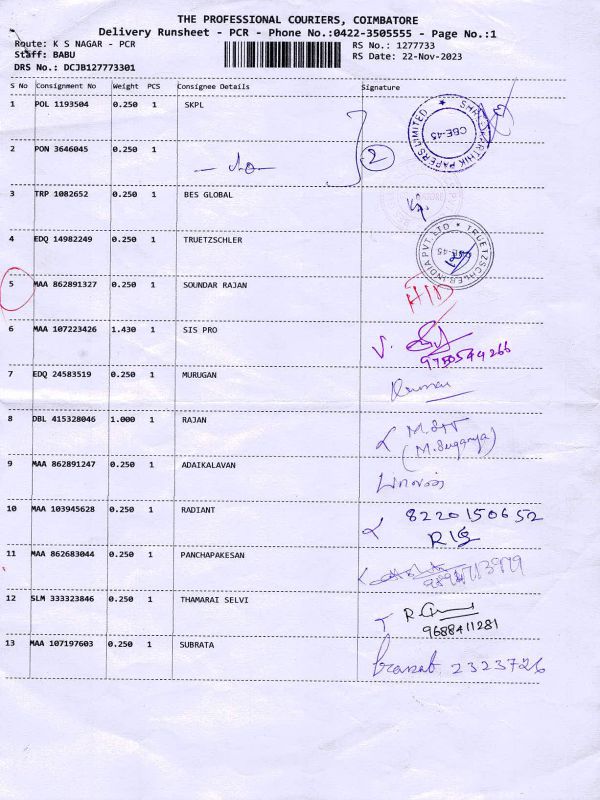 THE PROFESSIONAL COURIERS, COIMBATORE
Delivery Runsheet - PCR - Phone No.:0422-3505555 - Page No.:1
Route: K S NAGAR - PCR
RS No.: 1277733
Staff: BABU
RS Date: 22-Nov-2023
DRS No.: DCJB127773301
S No Consignment No Weight PCS Consignee Details Signature
1 POL 1193504 0.250 1 SKPL
CBE-45
2 PON 3646045 0.250 1
2
3 TRP 1082652 0.250 1 BES GLOBAL
4 EDQ 14982249 0.250 1 TRUETZSCHLER
TRUETZSCHLER INDIA PVT. LTD
5 MAA 862891327 0.250 1 SOUNDAR RAJAN
6 MAA 107223426 1.430 1 SIS PRO
7 EDQ 24583519 0.250 1 MURUGAN
8 DBL 415328046 1.000 1 RAJAN
(M.Suganya)
9 MAA 862891247 0.250 1 ADAIKALAVAN
10 MAA 103945628 0.250 1 RADIANT
8220150652
11 MAA 862683044 0.250 1 PANCHAPAKESAN
12 SLM 333323846 0.250 1 THAMARAI SELVI
9688411281
13 MAA 107197603 0.250 1 SUBRATA
2323726